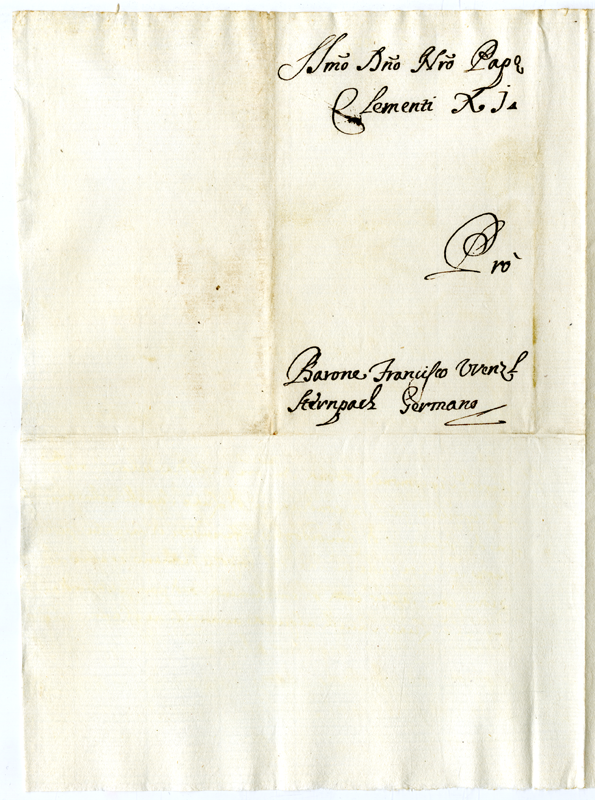 SSmo Dño Nrõ Papę
Clementi XI.
Prò
Barone Francisco VVenzl
Sternpach Germano